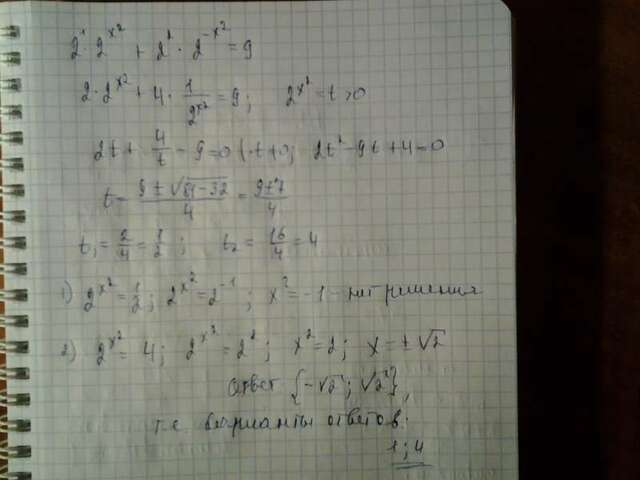 2¹ · 2^{x²} + 2² · 2^{-x²} = 9
2 · 2^{x²} + 4 · 1/2^{x²} = 9; 2^{x²} = t > 0
2t + 4/t - 9 = 0 | · t ≠ 0; 2t² - 9t + 4 = 0
t = (9 ± √(81 - 32))/4 = (9 ± 7)/4
t₁ = 2/4 = 1/2; t₂ = 16/4 = 4
1) 2^{x²} = 1/2; 2^{x²} = 2^{-1}; x² = -1 - нет решения
2) 2^{x²} = 4; 2^{x²} = 2²; x² = 2; x = ±√2
Ответ {-√2; √2},
т.е. варианты ответов:
1; 4